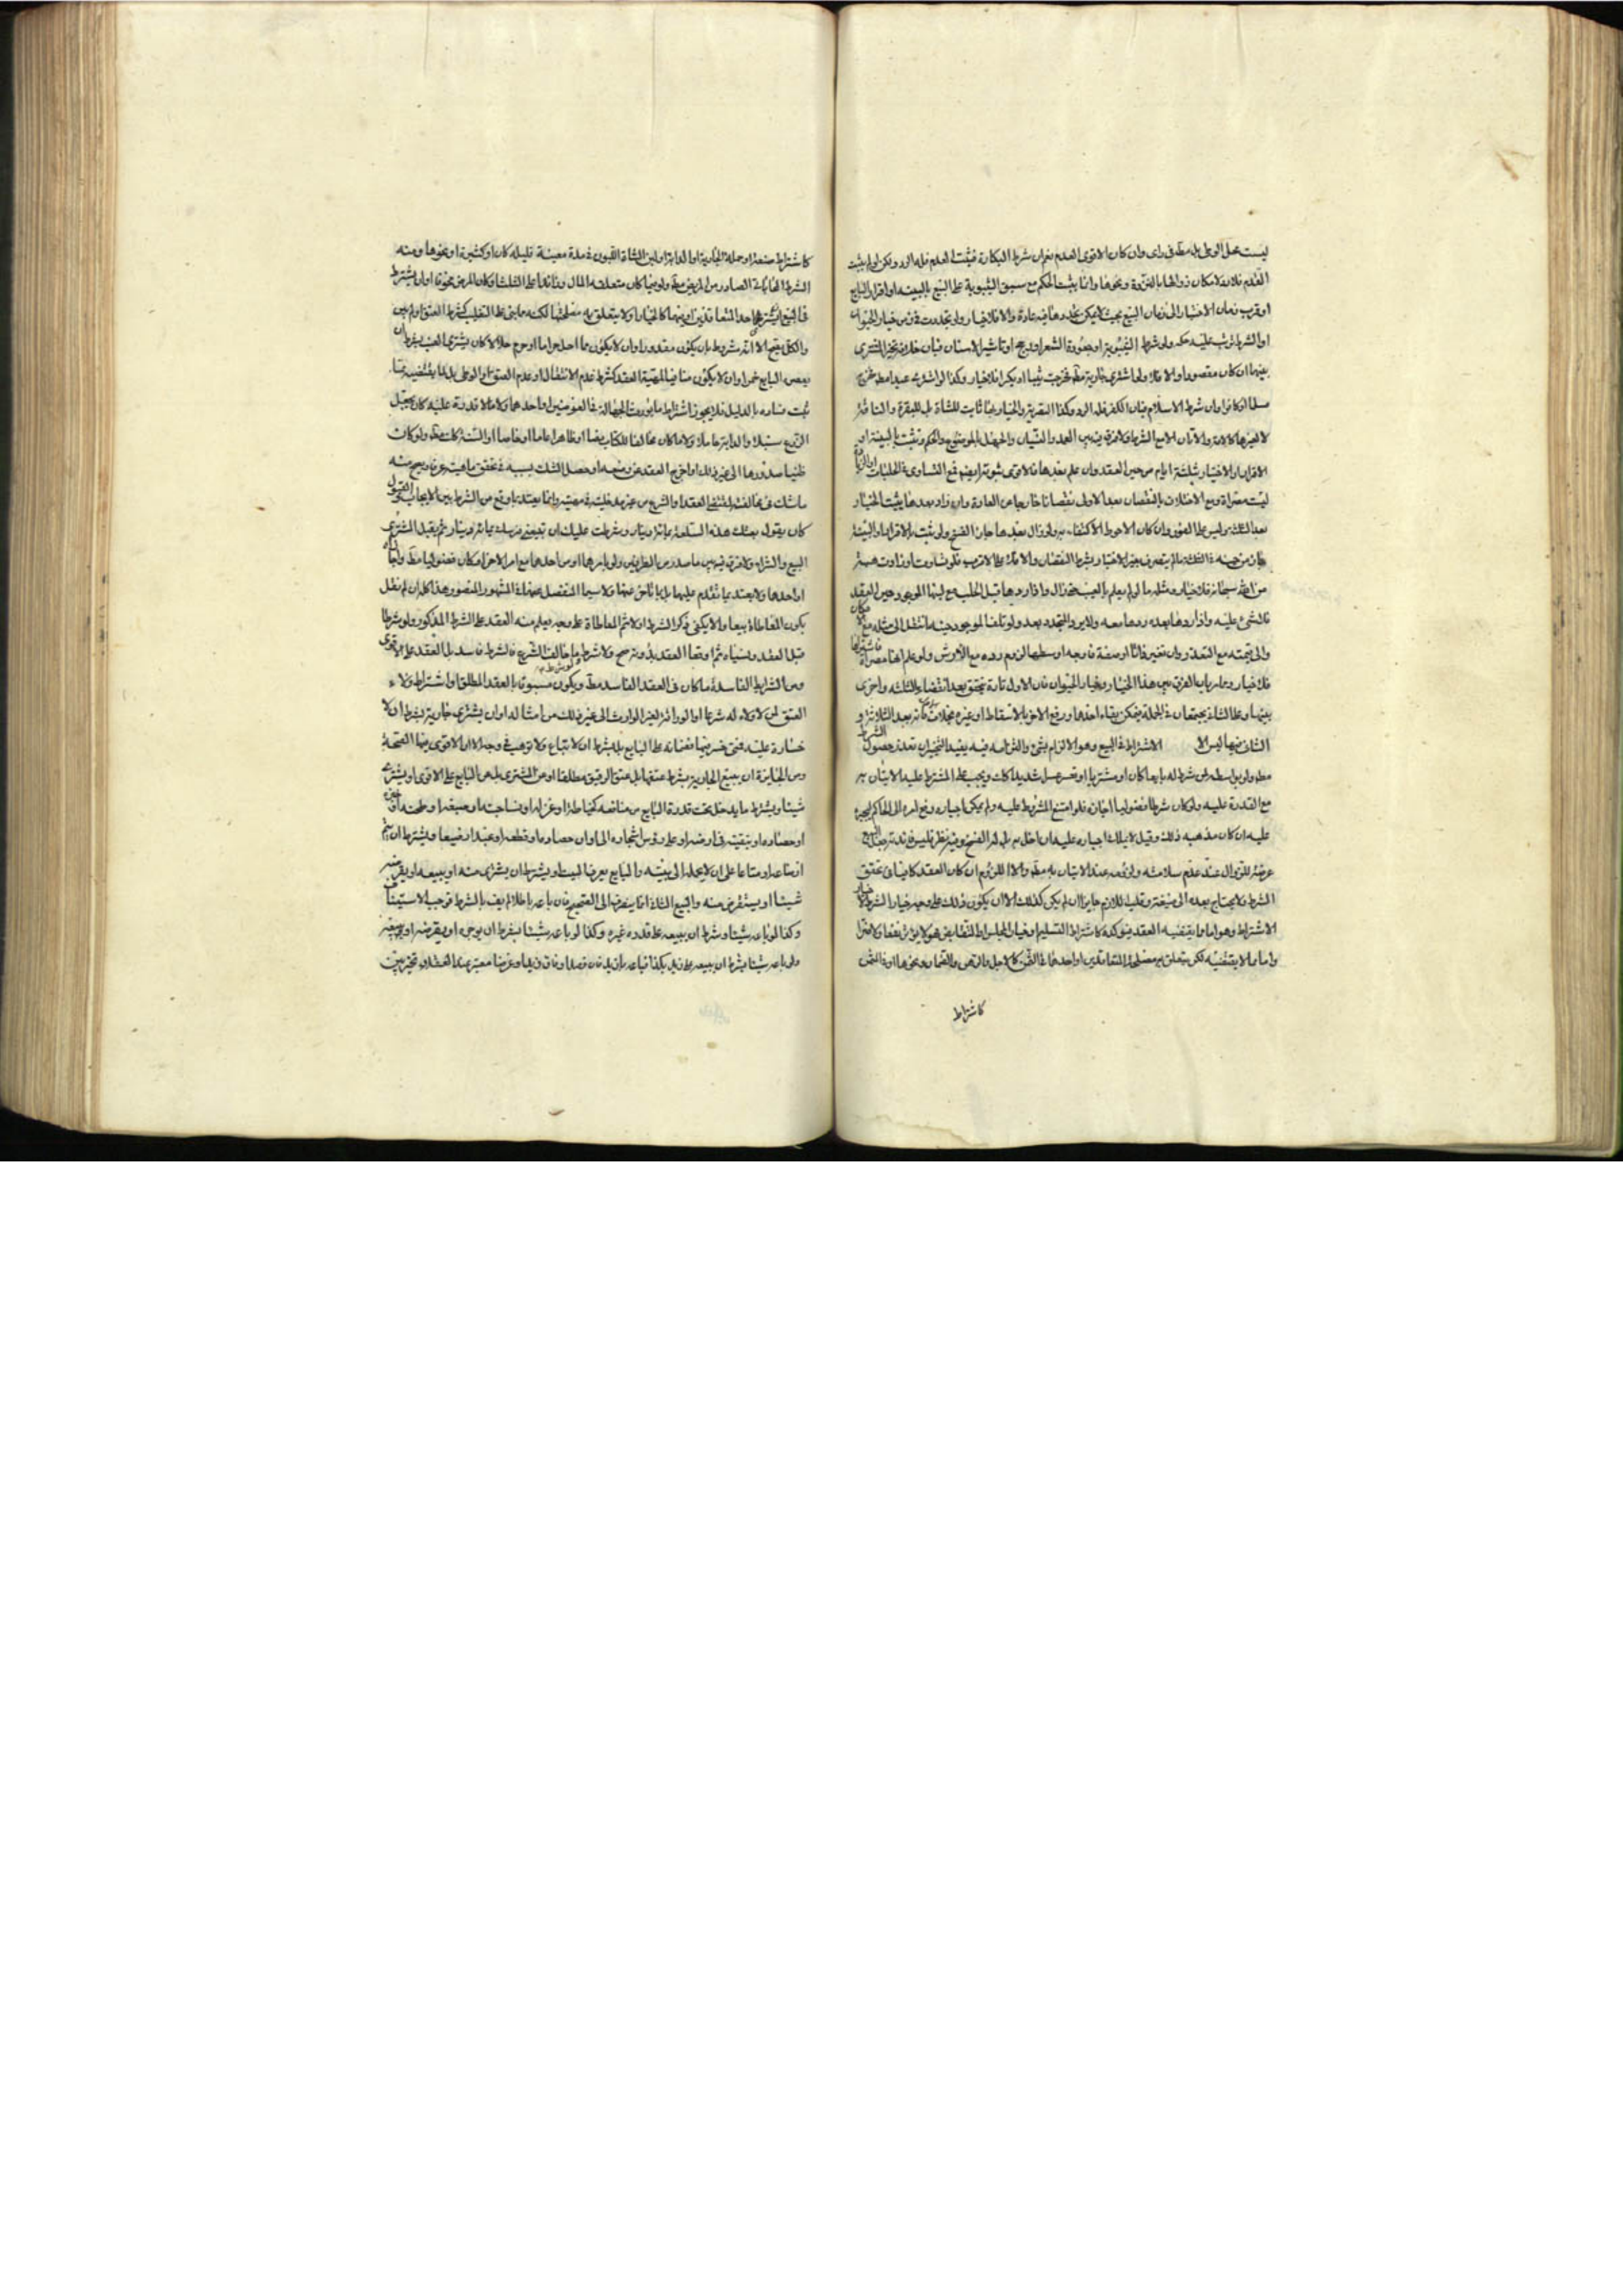 ليست محل الوطى بل مطلقا فى راى وان كان الاقوى العدم نعم ان شرط البكارة فثبت العدم فله الرد ولكن لو لم يثبت
العدم فلا رد لامكان ذوالها بالنزوة ونحوها وانما يثبت الحكم مع سبق الثيبوبة على البيع بالبينة او اقرار البايع
او قرب زمان الاختبار الى زمان البيع بحيث لا يمكن تجددها فيه عادة والا فلا خيار ولو تجددت فى زمن خيار الحيوان
او الشرط ترتب عليه حكمه ولو شرط الثيبوبة او جعودة الشعر او تاشير الاسنان فبان خلافه تخير المشترى
بينهما ان كان مقصودا والا فلا ولو اشترى جارية مطلقا فخرجت ثيبا او بكرا فلا خيار وكذا لو اشترى عبدا مطلقا فخرج
مسلما او كافرا وان شرط الاسلام فبان الكفر فله الرد وكذا التصرية والخيار بها ثابت للشاة بل للبقرة والناقة
لا لغيرها كالامة والاتان الا مع الشرط ولا فرق فيه بين العمد والنسيان والجهل بالموضوع والحكم وتثبت بالبينة او
الاقرار او الاختبار ثلثة ايام من حين العقد وان علم بعدها فالاقوى ثبوته ايضا فمع التساوى فى الحلبات او الزيادة
ليست مصراة ومع الاختلاف بالنقصان بعد الاول نقصانا خارجا عن العادة وان زاد بعدها يثبت الخيار
بعد الثلثة وليس على الفور وان كان الاحوط الاكتفاء به ولو زال بعدها جاز الفسخ ولو ثبت بالاقرار او البينة
جاز من حينه فى الثلثة ما لم يتصرف بغير الاختبار بشرط النقصان والا فلا على الاقرب فلو تساوت او زادت هبة
من الله سبحانه فلا خيار ومثله ما لو لم يعلم بالعيب حتى زال واذا ردها قبل الحلب مع لبنها الموجود حين العقد
فلا شئ عليه واذا ردها بعده ردها معه ولا يرد المتجدد بعد ولو تلف الموجود حينه انتقل الى مثله مع الامكان
والى قيمته مع التعذر وان تغير ذاتا او صفة فاوجه اوسطها لزوم رده مع الارش ولو علم انها مصراة فاشتراها
فلا خيار وعلم بان الفرق بين هذا الخيار وخيار الحيوان فان الاول تارة يتحقق بعد انقضاء الثلثة واخرى
بينها وعلى الثانى يجتمعان فى الجملة فيمكن بقاء احدها ورفع الاخر بالاسقاط او غيره بخلاف ما بعد الثلاثة و
الثانى منها ليس الا الاشتراط فى البيع وهو الالزام بشئ والتزامه فيه يفيد التخيير ان تعذر حصول الشرط
مطلقا ولو بواسطه لمن شرط له بايعا كان او مشتريا او تعسر عسرا شديدا كان ويجب على المشترط عليه الاتيان به
مع القدرة عليه ولو كان شرطا فضوليا اجازه فلو امتنع المشروط عليه ولم يمكن اجباره رفع امره الى الحاكم ليجبره
عليه ان كان مذهبه ذلك وقيل لا يملك اجباره عليه
عرضة للزوال عند عدم سلامته ولزومه عند الاتيان به مطلقا والا اللزوم ان كان العقد كافيا فى تحقق
الشرط فلا يحتاج بعده الى صيغة وقلب اللازم جايزا ان لم يكن كذلك الا ان يكون ذلك على وجه خيار الشرط
الاشتراط وهو اما ما يقتضيه العقد فيؤكده كاشتراط التسليم او خيار المجلس او التقابض فهو لا يؤثر نفعا ولا ضرا
واما ما لا يقتضيه لكن يتعلق به مصلحة المتعاقدين او احدهما فى الثمن كالاجل والرهن والضمان ونحوها او فى المثمن
كاشتراط
كاشتراط صنعة او حملة الجارية او الدابة او لبن الشاة اللبون فى مدة معينة قليله كان او كثيرة او نحوها ومنه
الشرط المحاباتى الصادر من المريض مطلقا ولو فيما كان متعلقه المال وزائدا على الثلث او كان المرض مخوفا او ان يشترط
فى البيع لاحد المتعاقدين او بينهما كالخيار او لا يتعلق به مصلحتهما لكنه ما بنى على التغليب كشرط العتق او لم يبن
والكل يصح الا انه مشروط بان يكون مقدورا وان لا يكون مما احل حراما او حرم حلالا كان يشترى العنب بشرط ان
يعصره البايع خمرا وان لا يكون منافيا لمقتضى العقد كشرط عدم الانتفال او عدم العتق او الوطى بل لما يقتضيه مما
ثبت فساده بالدليل فلا يجوز اشتراط ما يورث الجهالة فى العوضين او احدهما ولا ما لا قدرة عليه كان يجعل
الزرع سنبلا والدابة حاملا ولا ما كان مخالفا للكتاب نصا او ظاهرا عاما او خاصا او السنة كانت مطلقا ولو كانت
ظنيا صدورها الى غير ذلك او اخرج العقد عن وضعه او حصل الشك بسببه فى تحقق ماهيته عرفا ويصح منه
ما شك فى مخالفته لمقتضى العقد او الشرع من غير مدخلية فى صحته وانما يعتد بما وقع من الشرط بين الايجاب والقبول
كان يقول بعتك هذه السلعة بمائة دينار وشرطت عليك ان تبيعنى فرسك بمائة دينار ثم يقبل المشترى
البيع والشراء ولا فرق فيه بين ما صدر من الطرفين ولو بامرهما او من احدهما مع امر الاخر او كان فضوليا مطلقا واجازاه
او احدهما ولا يعتد بما تقدم عليهما بل بما تاخر عنهما ولا سيما المنفصل عنهما فى المشهور المنصور هذا كله ان لم نقل
بكون المعاطاة بيعا والا يكفى ذكر الشرط اولا ثم المعاطاة على وجه يعلم منه العقد على الشرط المذكور ولو شرطا
قبل العقد ونسياه ثم اوقعا العقد بدونه صح ولا شرط وما خالف الشرع فالشرط فاسد بل العقد على الاقوى
ومن الشرايط الفاسدة ما كان فى العقد الفاسد مطلقا ويكون مسبوقا بالعقد المطلق او اشتراط ولاء
العتق لمن لا ولاء له شرعا او الوراثة لغير الوارث الى غير ذلك من امثاله او ان يشترى جارية بشرط ان لا
خسارة عليه فمتى خسر فيها فضمانه على البايع بل بشرط ان لا تباع ولا توهب فى وجه الا ان الاقوى فيها الصحة
ومن الجايزة ان يبيع الجارية بشرط عتقها بل عتق الرقيق مطلقا او من المشترى بل من البايع على الاقوى او يشترى
شيئا ويشترط ما يدخل تحت قدرة البايع من منافعه كخياطة او غزله او نساجته او صبغه او طحنه او خبزه
او حصاده او تبقيته فى ارضه او على رؤس اشجاره الى اوان حصاده او قطعه او عبدا رضيعا ويشترط ان يتم
ارضاعه او متاعا على ان لا يحمله الى بيته والبايع يعرف البيت او يشترط ان يشترى منه او يبيعه او يقرضه
شيئا او يستقرض منه والبيع الثانى انما ينصرف الى الصحيح فان باعه باطلا لم يف بالشرط فوجب الاستيناف
وكذا لو باعه شيئا وشرط ان يبيعه على قدره غيره وكذا لو باعه شيئا بشرط ان يوجره او يقرضه او
ولو باعه شيئا بشرط ان يبيعه على زيد بكذا فباعه بازيد فان قصدا وفات زيد او عرضا معتبر عند العقلاء تخير بين